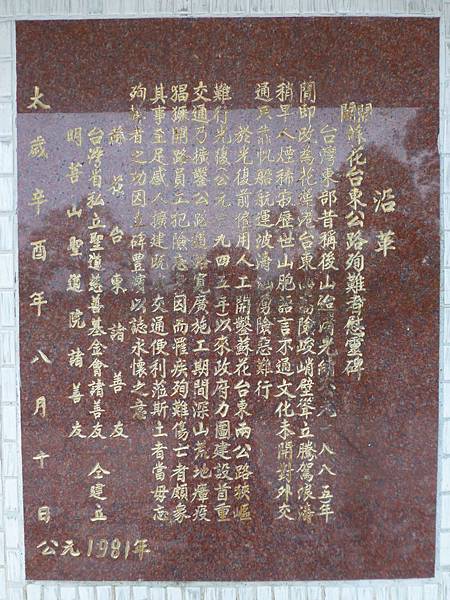 沿革
開闢蘇花台東公路殉難者慰靈碑
台灣東部昔稱後山迨滿光緒公元一八八五年
間即改為花蓮港台東山高陵峻峭壁聳立騰駕浪濤
稍早人煙稀寂歷世山胞語言不通文化未開對外交
通只靠帆船航運波濤洶湧險惡難行
於光復前僱用人工開鑿蘇花台東兩公路狹嶇
難行光復(公元一九四五年)以來政府力圖建設首重
交通乃擴鑿公路道路寬廣施工期間深山荒地瘴疫
猖獗開路員工犯險因而罹疾殉難傷亡者頗眾
其事至足感人擴建既交通便利蒞斯土者當毋忘
殉難者之功因立碑豐濱以誌永懷之意
蘇花台東諸善友
台灣省私立聖道慈善基金會諸善友 仝建立
明善山聖道院諸善友
太歲辛酉年八月十日
公元1981年